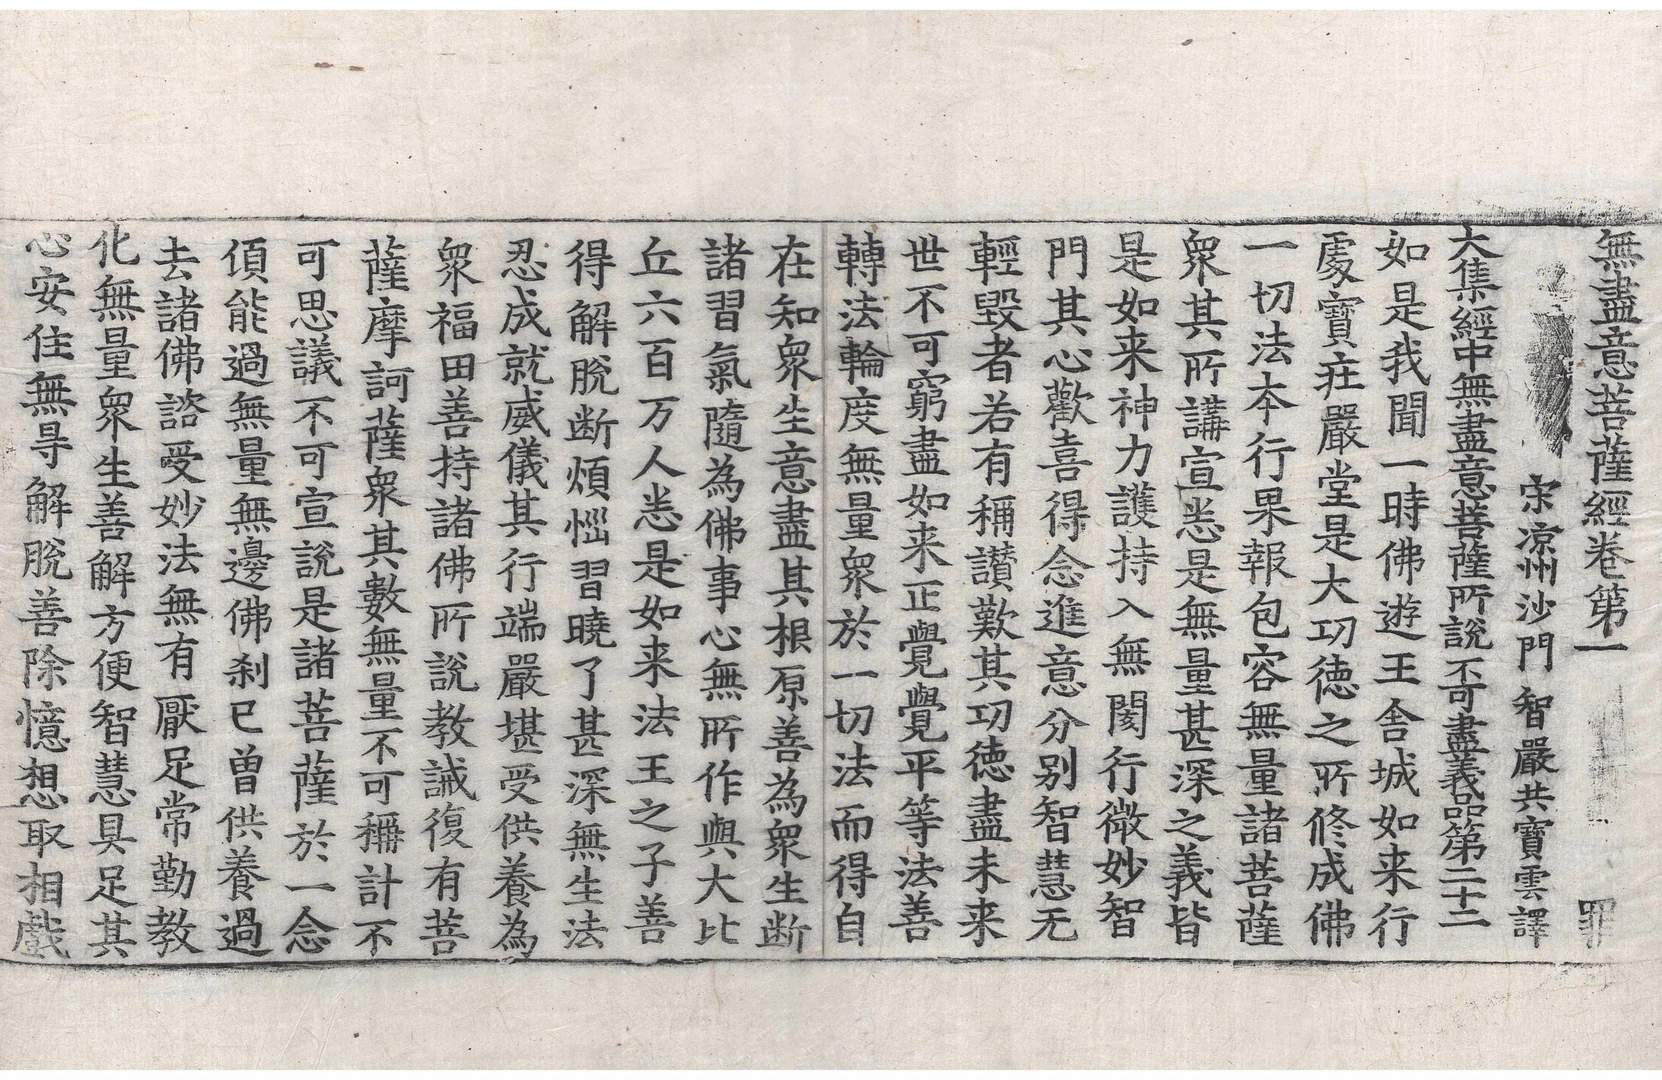 無盡意菩薩經卷第一 罪
宋涼州沙門 智嚴共寶雲譯
大集經中無盡意菩薩所說不可盡義品第三十二
如是我聞一時佛遊王舍城如来行
處寶庄嚴堂是大功徳之所修成佛
一切法本行果報包容無量諸菩薩
衆其所講宣悉是無量甚深之義皆
是如来神力護持入無閡行微妙智
門其心歡喜得念進意分别智慧无
輕毀者若有稱讃歎其功徳盡未来
世不可窮盡如来正覺覺平等法善
轉法輪度無量衆於一切法而得自
在知衆生意盡其根原善為衆生断
諸習氣隨為佛事心無所作與大比
丘六百万人悉是如来法王之子善
得解脫断煩惱習曉了甚深無生法
忍成就威儀其行端嚴堪受供養為
衆福田善持諸佛所說教誡復有菩
薩摩訶薩衆其數無量不可稱計不
可思議不可宣說是諸菩薩於一念
頃能過無量無邊佛刹已曾供養過
去諸佛諮受妙法無有厭足常勤教
化無量衆生善解方便智慧具足其
心安住無导解脫善除憶想取相戲